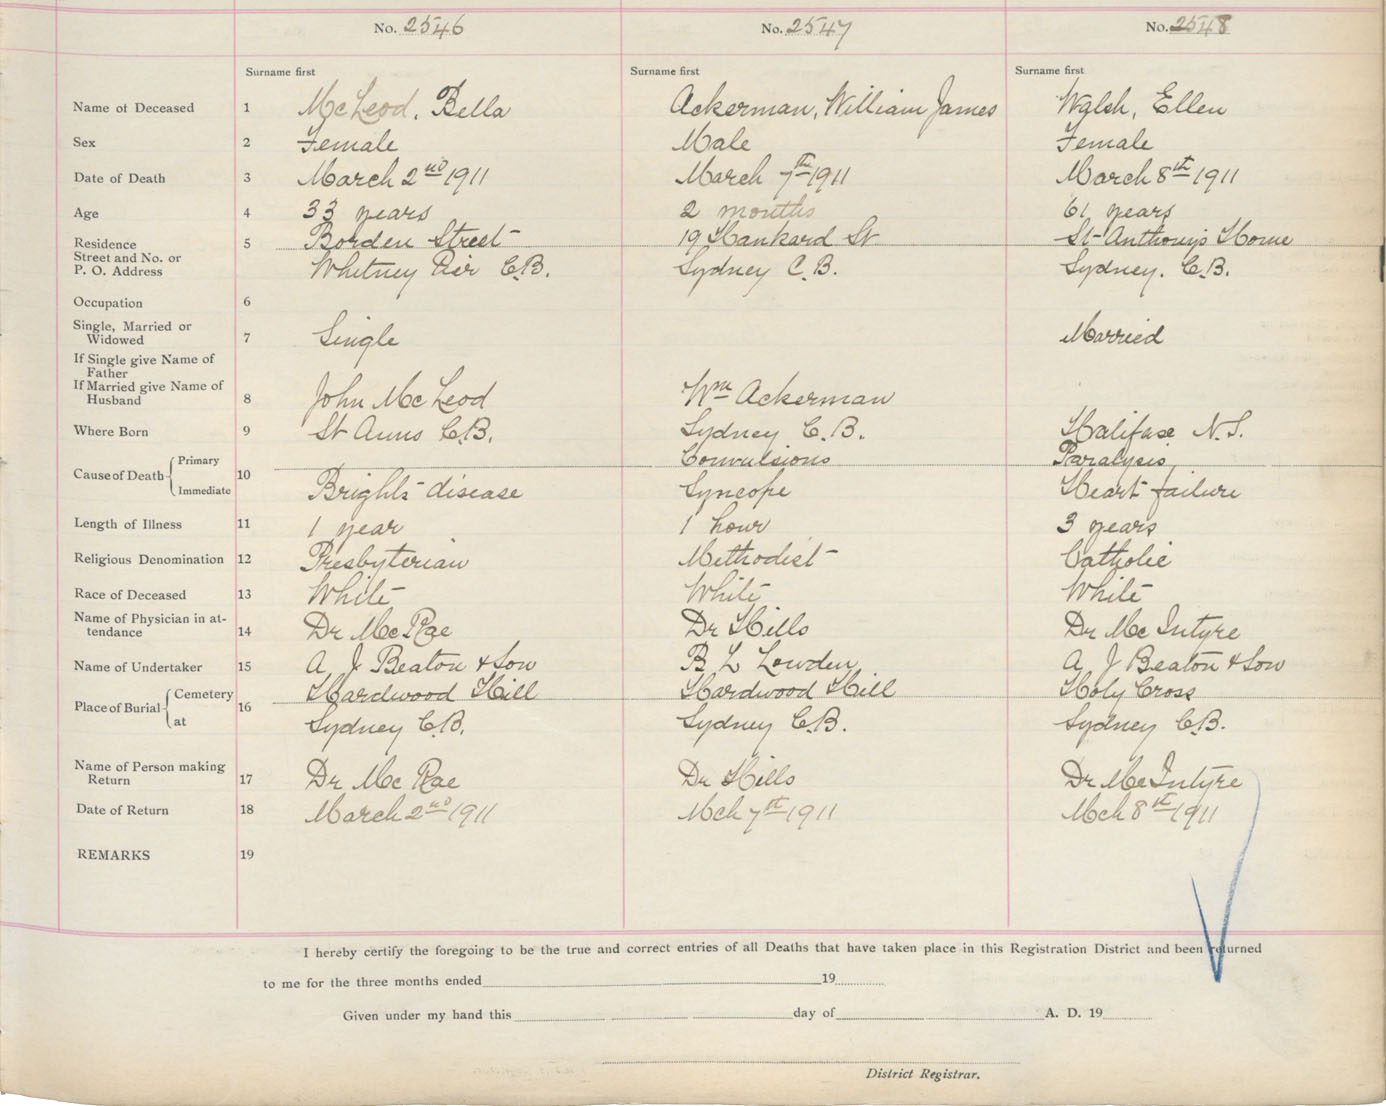 No. 2546 No. 2547 No. 2548
Surname first Surname first Surname first
Name of Deceased 1 McLeod, Bella Ackerman, William James Walsh, Ellen
Sex 2 Female Male Female
Date of Death 3 March 2nd 1911 March 7th 1911 March 8th 1911
Age 4 33 years 2 months 61 years
Residence 5 Borden Street 19 Hankard St St Anthony's Home
Street and No. or
P. O. Address Whitney Pier C.B. Sydney C.B. Sydney. C.B.
Occupation 6
Single, Married or
Widowed 7 Single Married
If Single give Name of
Father
If Married give Name of
Husband 8 John McLeod Wm Ackerman
Where Born 9 St Anns C.B. Sydney C.B. Halifax N.S.
Cause of Death Primary 10 Convulsions Paralysis
Immediate Brights disease Syncope Heart failure
Length of Illness 11 1 year 1 hour 3 years
Religious Denomination 12 Presbyterian Methodist Catholic
Race of Deceased 13 White White White
Name of Physician in at-
tendance 14 Dr McRae Dr Hills Dr McIntyre
Name of Undertaker 15 A J Beaton & Son B L Lowden A J Beaton & Son
Place of Burial Cemetery 16 Hardwood Hill Hardwood Hill Holy Cross
at Sydney C.B. Sydney C.B. Sydney C.B.
Name of Person making
Return 17 Dr McRae Dr Hills Dr McIntyre
Date of Return 18 March 2nd 1911 Mch 7th 1911 Mch 8th 1911
REMARKS 19
I hereby certify the foregoing to be the true and correct entries of all Deaths that have taken place in this Registration District and been returned
to me for the three months ended 19
Given under my hand this day of A. D. 19
District Registrar.